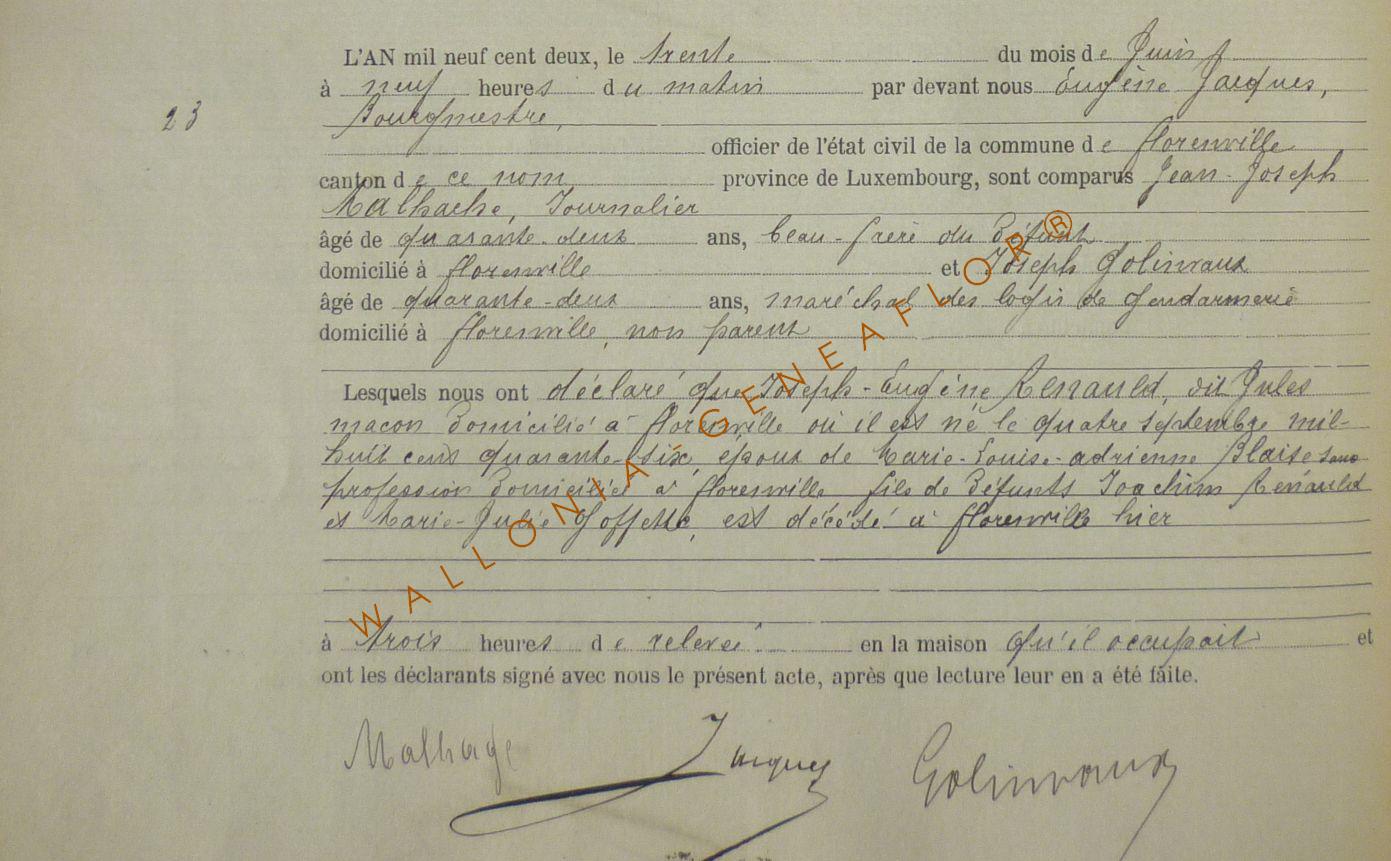 L'AN mil neuf cent deux, le trente du mois de Juin
à neuf heures du matin par devant nous Eugène Jacques,
23
Bourgmestre,
officier de l'état civil de la commune de florenville
canton de ce nom province de Luxembourg, sont comparus Jean-Joseph
Malhache, Journalier
âgé de quarante-deux ans, beau-frère du Défunt
domicilié à florenville et Joseph Golinvaux
âgé de quarante-deux ans, maréchal des logis de gendarmerie
domicilié à florenville, non parent
Lesquels nous ont déclaré que Joseph-Eugène Renauld, dit Jules
maçon Domicilié à florenville où il est né le quatre septembre mil-
huit cent quarante-six, époux de Marie-Louise-adrienne Blaise sans
profession Domiciliée à florenville fils de Défunts Joachim Renauld
et Marie-Julie Goffette, est décédé à florenville hier
à trois heures de relevée en la maison qu'il occupait et
ont les déclarants signé avec nous le présent acte, après que lecture leur en a été faite.
Malhage Jacques Golinvaux
WALLONIA-GENEAFLOR®